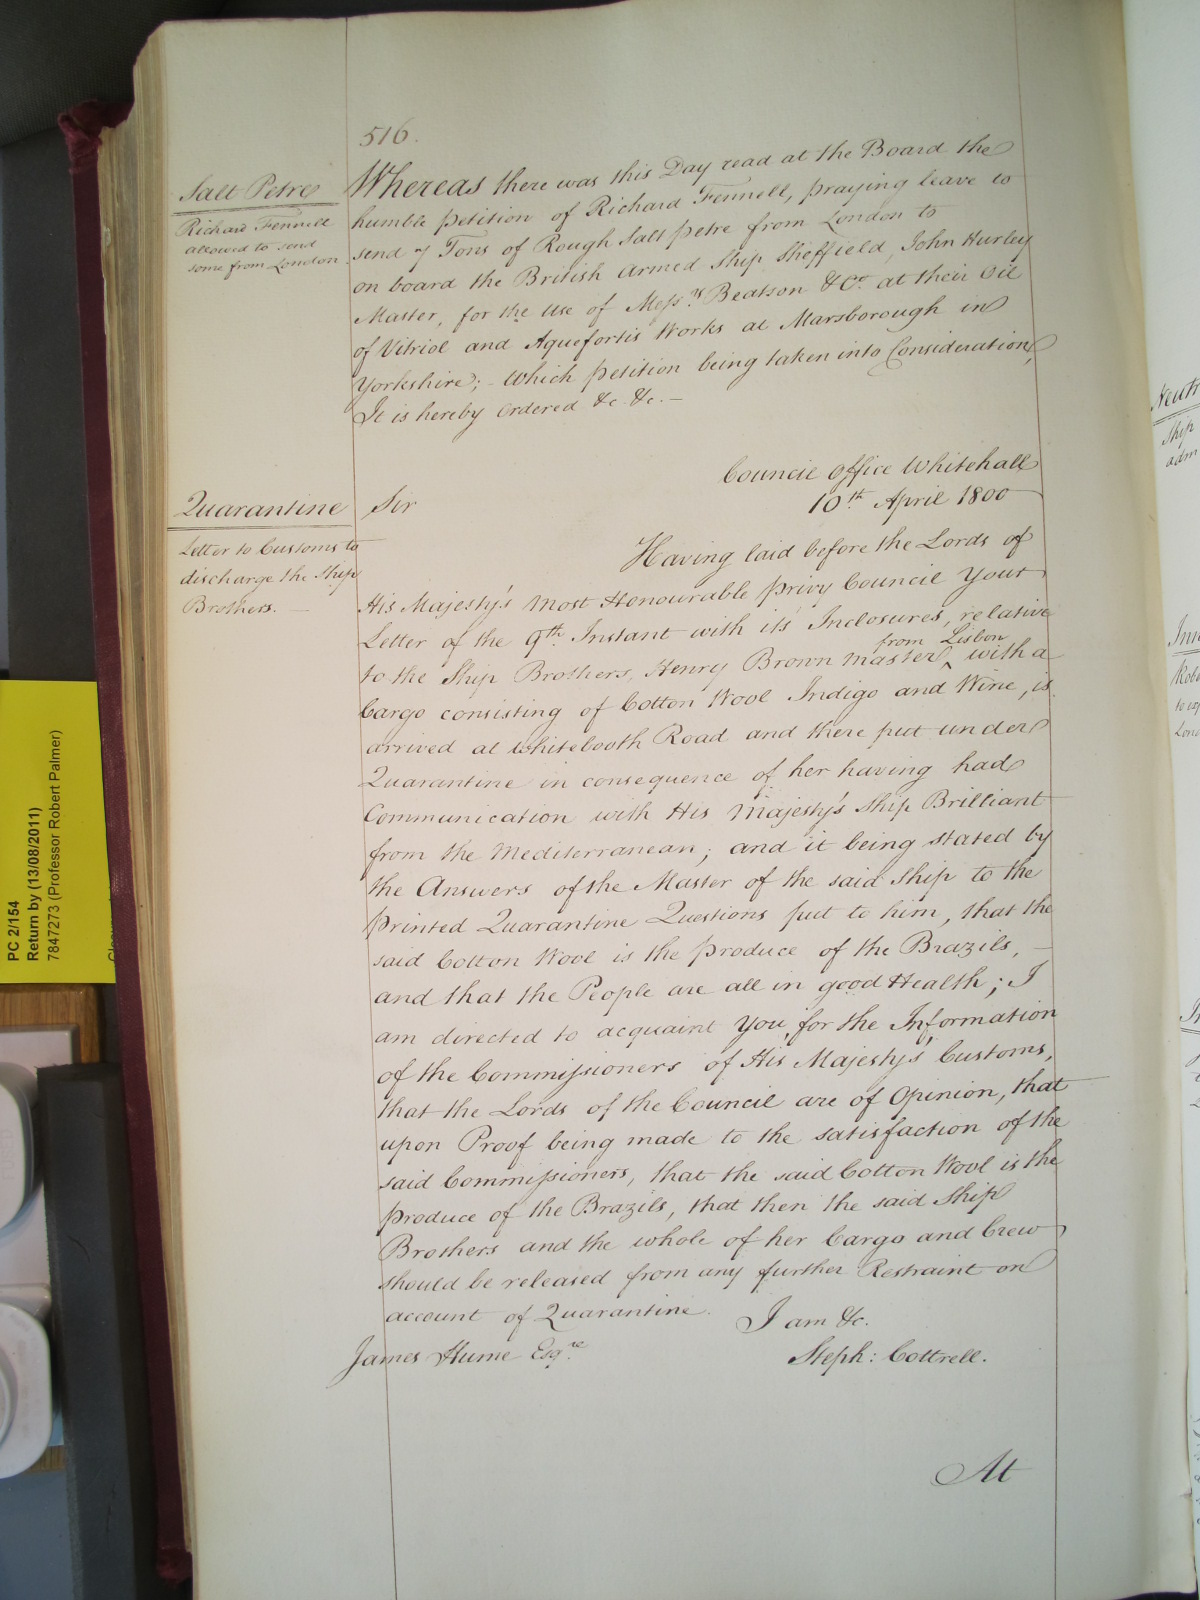 516.
Salt Petre
Richard Fennell
allowed to send
some from London
Whereas there was this Day read at the Board the
humble petition of Richard Fennell, praying leave to
send 7 Tons of Rough Salt petre from London to
on board the British armed Ship Sheffield, John Hurley
Master, for the use of Messrs Beatson & Co. at their Oil
of Vitriol and Aquefortis Works at Marsborough in
Yorkshire; - Which petition being taken into Consideration,
It is hereby Ordered &c. &c. -
Council Office Whitehall
10th April 1800
Quarantine
Letter to Customs to
discharge the Ship
Brothers. -
Sir
Having laid before the Lords of
His Majesty's most Honourable privy Council Your
Letter of the 9th Instant with it's Inclosures, relative
from Lisbon
to the Ship Brothers, Henry Brown master ‸ with a
Cargo consisting of Cotton Wool Indigo and Wine, is
arrived at Whitebooth Road and there put under
Quarantine in consequence of her having had
Communication with His Majesty's Ship Brilliant
from the Mediterranean; and it being stated by
the Answers of the Master of the said Ship to the
Printed Quarantine Questions put to him, that the
said Cotton Wool is the produce of the Brazils, -
and that the People are all in good Health; I
am directed to acquaint You, for the Information
of the Commissioners of His Majesty's Customs,
that the Lords of the Council are of Opinion, that
upon Proof being made to the satisfaction of the
said Commissioners, that the said Cotton Wool is the
produce of the Brazils, that then the said Ship
Brothers and the whole of her Cargo and Crew
should be released from any further Restraint on
account of Quarantine.
I am &c.
James Hume Esqre.
Steph: Cottrell.
At
PC 2/154
Return by (13/08/2011)
7847273 (Professor Robert Palmer)
Ship
adm